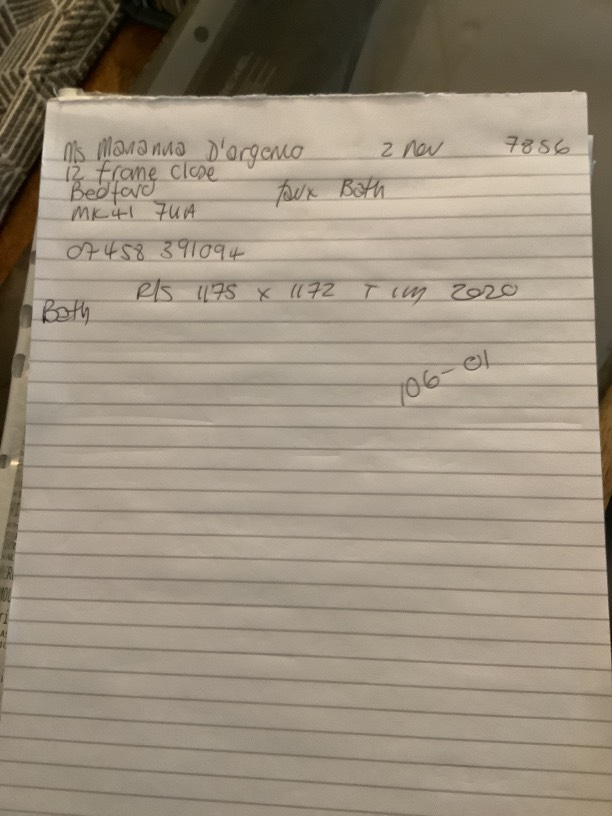 Ms Marianna D'argenio 2 Nov 7856
12 Frame Close
Bedford faux Both
MK41 7UA
07458 391094
R/S 1175 x 1172 T 2020
Both
106-01